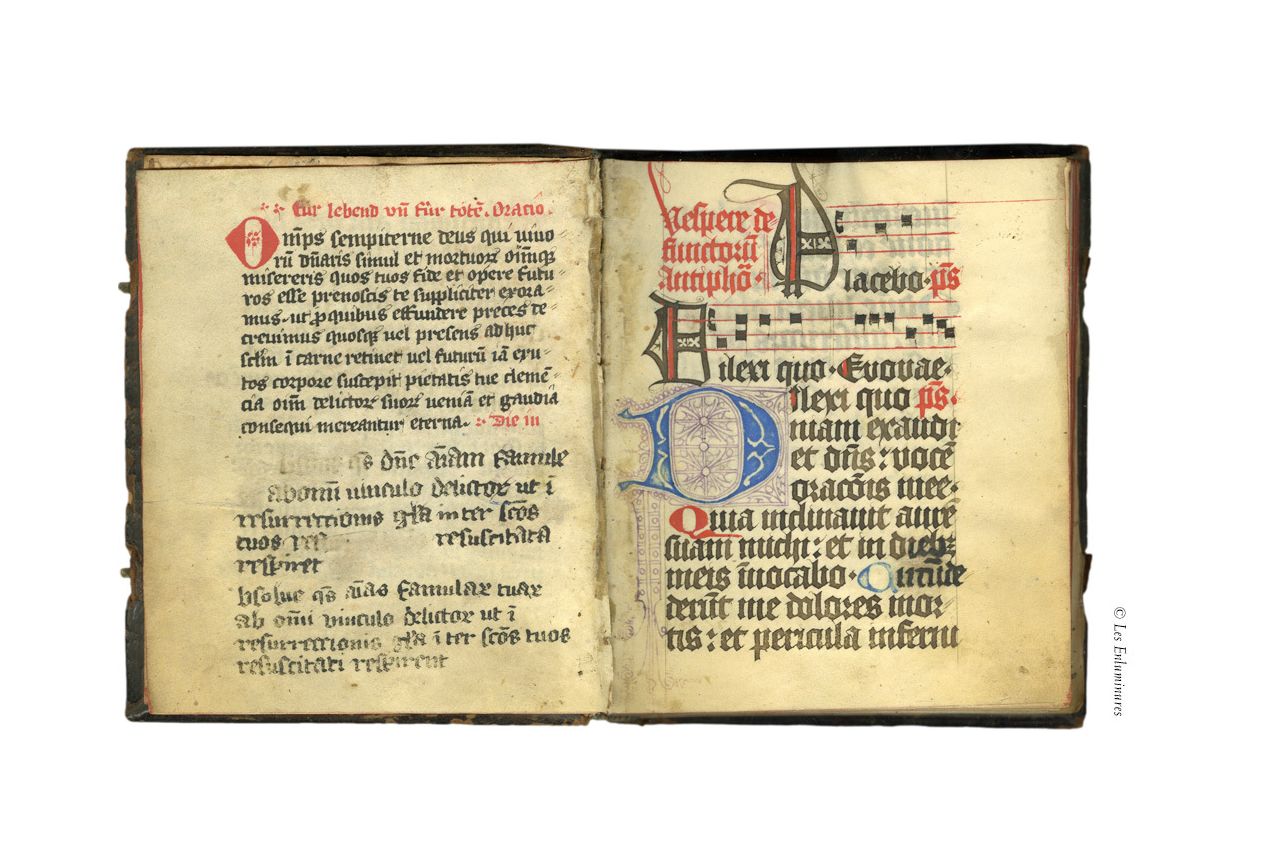 fur lebend vn̄ fûr totē. Oratio.
Om̄ps sempiterne deus qui uiuo
rū dn̄aris simul et mortuorꝝ oīmqꝫ
misereris quos tuos fide et opere futu-
ros esse prenoscis te suppliciter exora-
mus. ut ꝓ quibus effundere preces de-
creuimus quosqꝫ uel presens adhuc
sclm̄ ī carne retinet uel futurū iā exu-
tos corpore suscepit pietatis tue clemē-
cia oīm delictorꝝ suorꝝ ueniā et gaudia
consequi mereantur eterna. Die in
qs dn̄e aīam famule
ab omni uinculo delictorꝝ ut ī
resurrectionis gl̄a inter scōs
tuos resuscitata
respiret
bsolue qs aīas famularꝝ tuarꝝ
ab om̄i vinculo delictorꝝ ut ī
resurrectionis gl̄a ī ter scōs tuos
resuscitati respirent
Vespere de
functorū
Antiphō.
Placebo. ps̄
Dilexi quo. Euouae.
Dilexi quo ps̄.
niam exaudi
et dn̄s: vocē
oracōis mee.
Quia inclinauit aurē
suam michi: et in diebꝫ
meis īuocabo. Circūde
derūt me dolores mor-
tis: et pericula inferni
© Les Enluminures